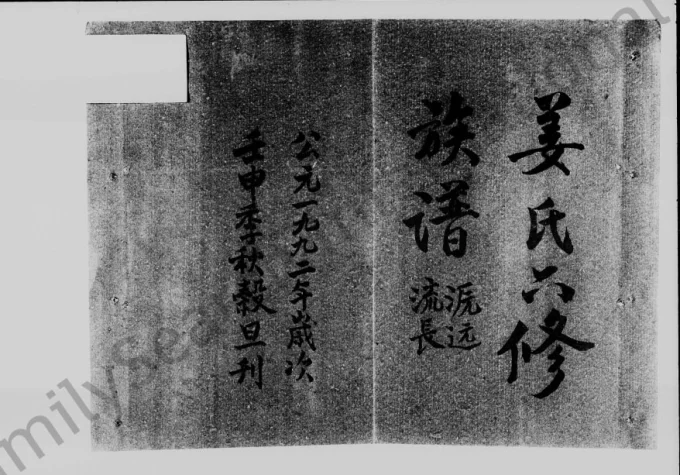 姜氏六修
族谱
源远
流長
公元一九九二年歲次
壬申季秋榖旦刊